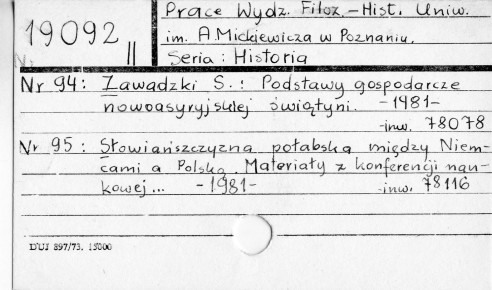 19092 II
Prace Wydz. Filoz.-Hist. Uniw.
im. A. Mickiewicza w Poznaniu.
Seria: Historia
Nr 94: Zawadzki S.: Podstawy gospodarcze
nowoasyryjskiej świątyni. -1981-
-inw. 78078
Nr 95: Słowiańszczyzna połabska między Niem-
cami a Polską. Materiały z konferencji nau-
kowej... -1981- -inw. 78116
DUJ 897/73. 15000